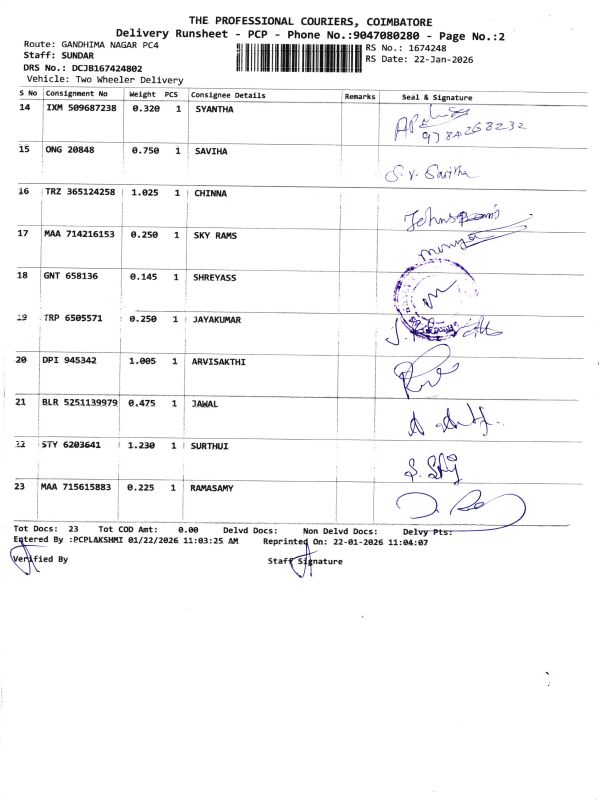 THE PROFESSIONAL COURIERS, COIMBATORE
Delivery Runsheet - PCP - Phone No.:9047080280 - Page No.:2
Route: GANDHIMA NAGAR PC4
RS No.: 1674248
Staff: SUNDAR
RS Date: 22-Jan-2026
DRS No.: DCJB167424802
Vehicle: Two Wheeler Delivery
S No Consignment No Weight PCS Consignee Details Remarks Seal & Signature
14 IXM 509687238 0.320 1 SYANTHA
9784268232
15 ONG 20848 0.750 1 SAVIHA
S. V. Savitha
16 TRZ 365124258 1.025 1 CHINNA
17 MAA 714216153 0.250 1 SKY RAMS
18 GNT 658136 0.145 1 SHREYASS
19 TRP 6505571 0.250 1 JAYAKUMAR
20 DPI 945342 1.005 1 ARVISAKTHI
21 BLR 5251139979 0.475 1 JAWAL
22 STY 6203641 1.230 1 SURTHUI
23 MAA 715615883 0.225 1 RAMASAMY
Tot Docs: 23 Tot COD Amt: 0.00 Delvd Docs: Non Delvd Docs: Delvy Pts:
Entered By :PCPLAKSHMI 01/22/2026 11:03:25 AM Reprinted On: 22-01-2026 11:04:07
Verified By Staff Signature